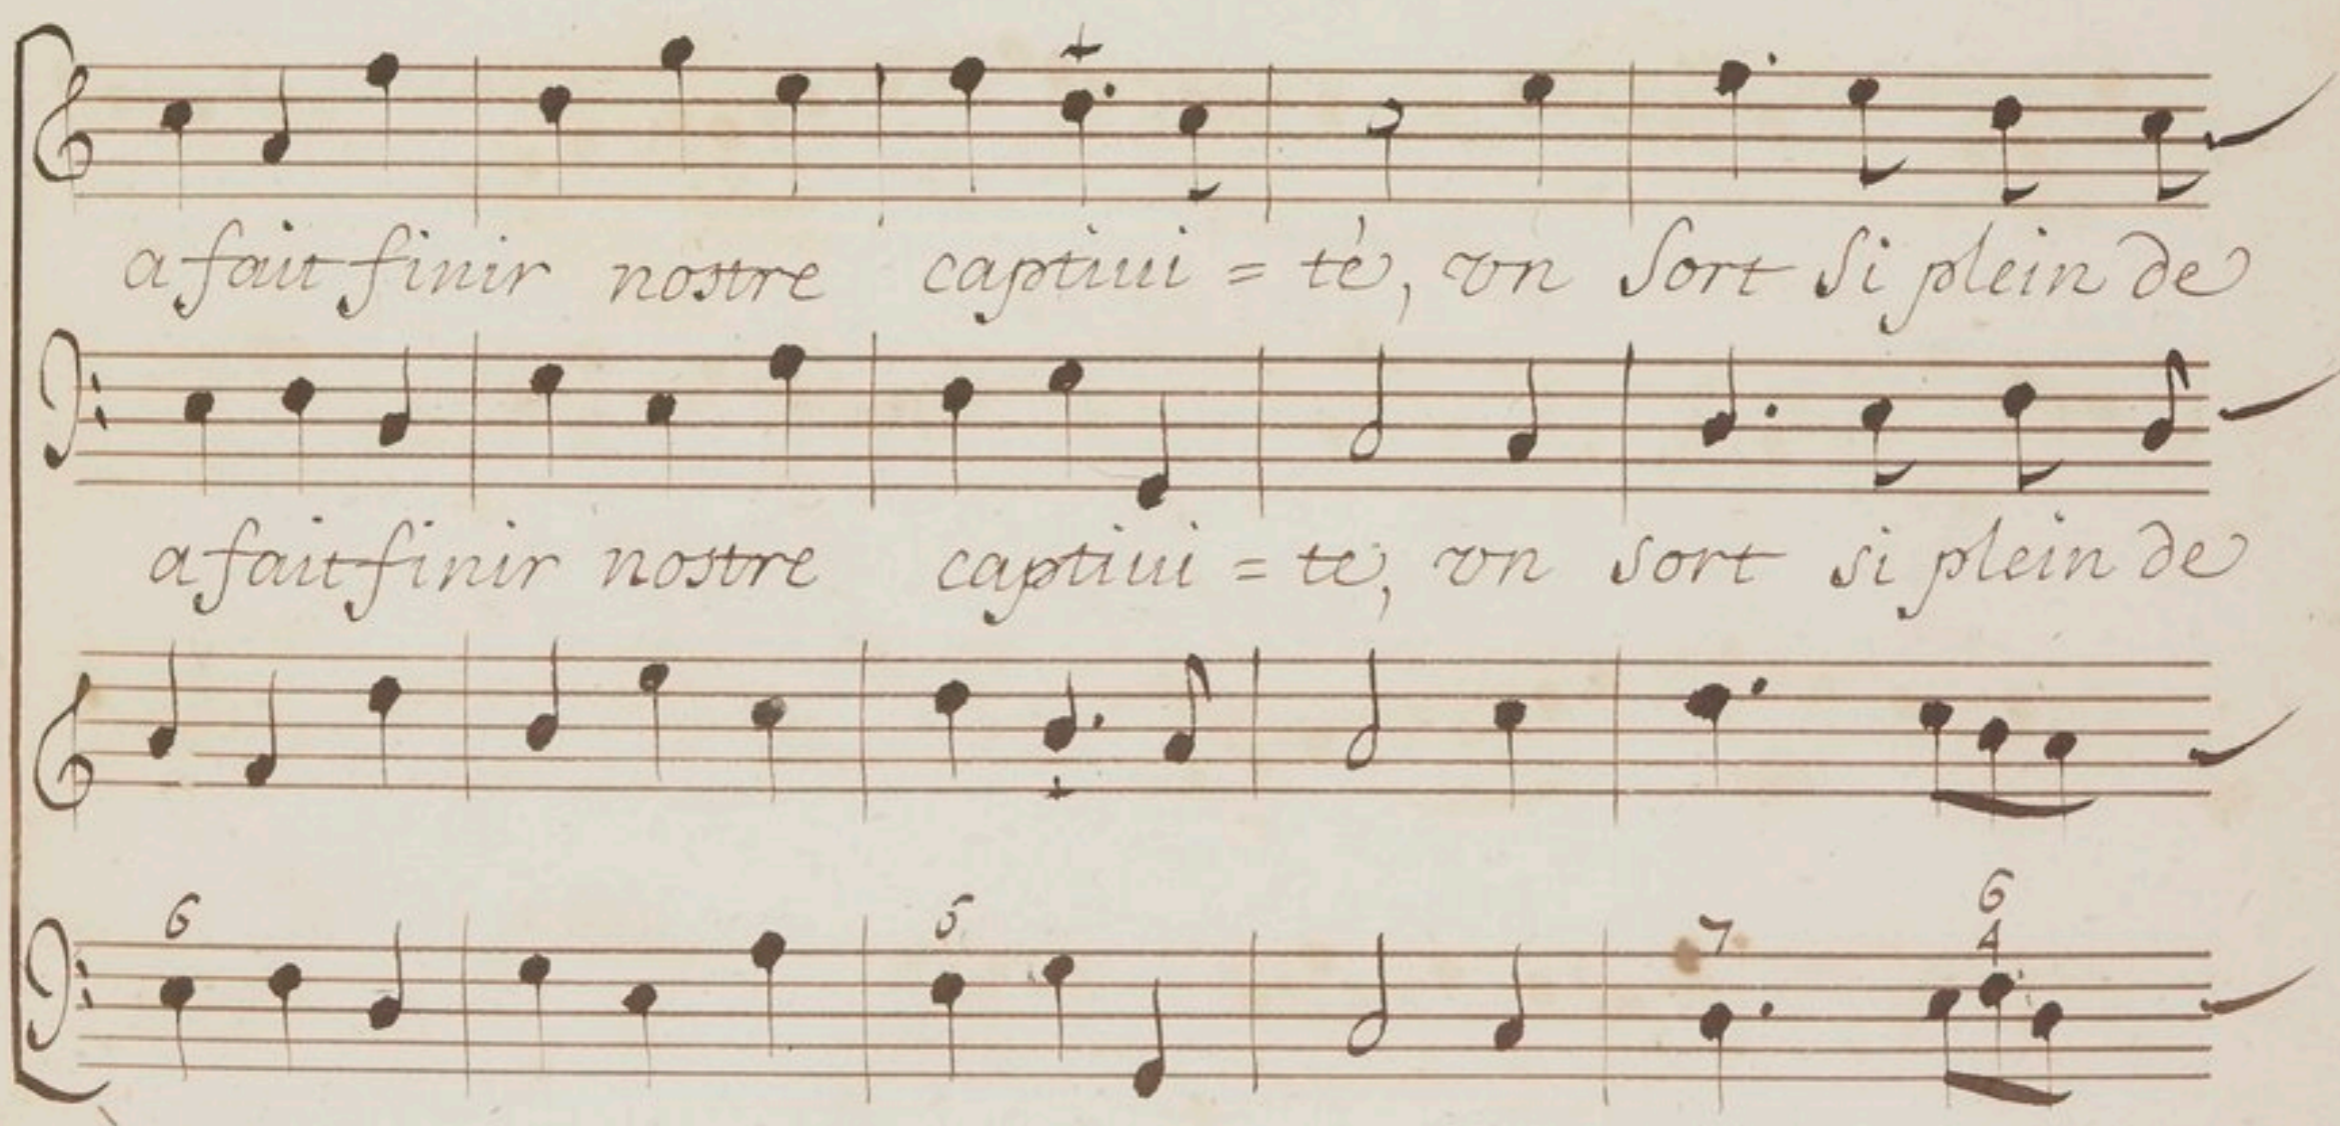 a fait finir nostre captiui = té, vn sort si plein de
a fait finir nostre captiui = te, vn sort si plein de
6 5 7 6
4